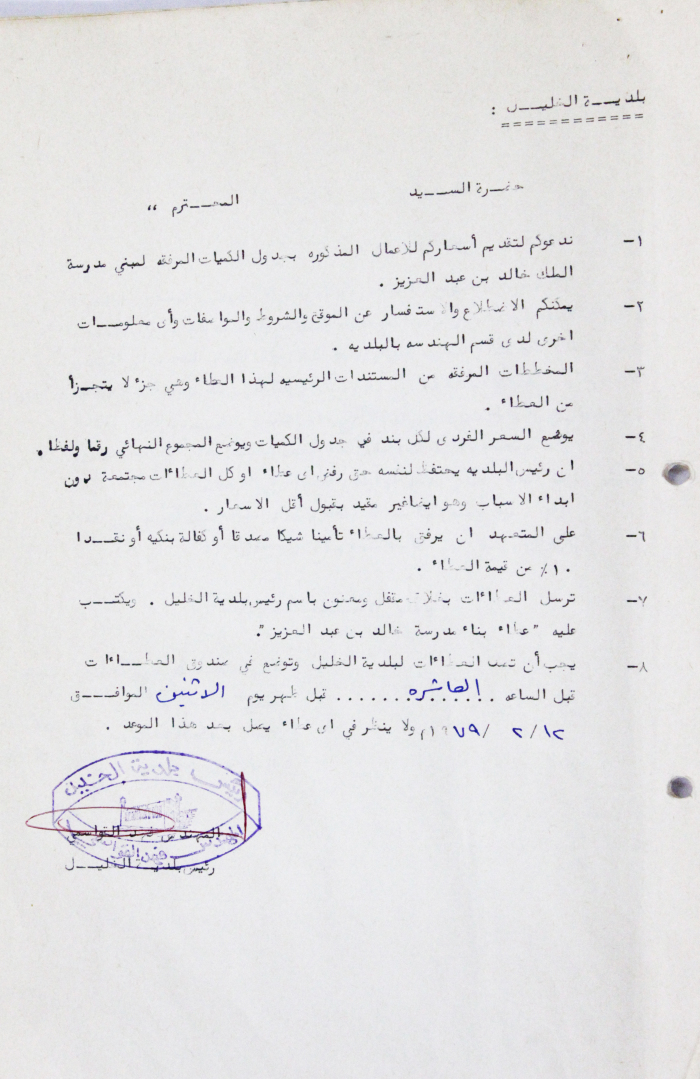 بلديـــة الخليـــل :
============
حضـرة الســـيد المحـــترم ،،
١– ندعوكم لتقديم أسعاركم للاعمال المذكوره بجدول الكميات المرفقه لمبني مدرسة
الملك خالد بن عبد العزيز .
٢– يمكنكم الاطلاع والاستفسار عن الموقع والشروط والمواصفات وأى معلومـــات
اخرى لدى قسم الهندسه بالبلديه .
٣– المخططات المرفقه من المستندات الرئيسيه لهذا العطاء وهي جزء لا يتجـــزأ
من العطاء .
٤– يوضع السعر الفردى لكل بند في جدول الكميات ويوضع المجموع النهائي رقما ولفظا .
٥– ان رئيس البلديه يحتفظ لنفسه حق رفض اى عطاء او كل العطاءات مجتمعة دون
ابداء الاسباب وهو ايضا غير مقيد بقبول أقل الاسعار .
٦– على المتعهد ان يرفق بالعطاء تأمينا شيكا مصدقا أو كفالة بنكيه أو نقـــدا
١٠٪ من قيمة العطاء .
٧– ترسل العطاءات بغلاف مقفل ومعنون باسم رئيس بلدية الخليل . ويكتـــب
عليه "عطاء بناء مدرسة خالد بن عبد العزيز".
٨– يجب أن تعاد العطاءات لبلدية الخليل وتوضع في صندوق العطـــاءات
قبل الساعه العاشره قبل ظهر يوم الاثنين الموافـــق
١٢/ ٢ /١٩٧٩م ولا ينظر في اى عطاء يصل بعد هذا الموعد .
رئيس بلدية الخليل
المهندس فهد القواسمي
المهندس فهد القواسمي
رئيس بلديـــة الخليـــل